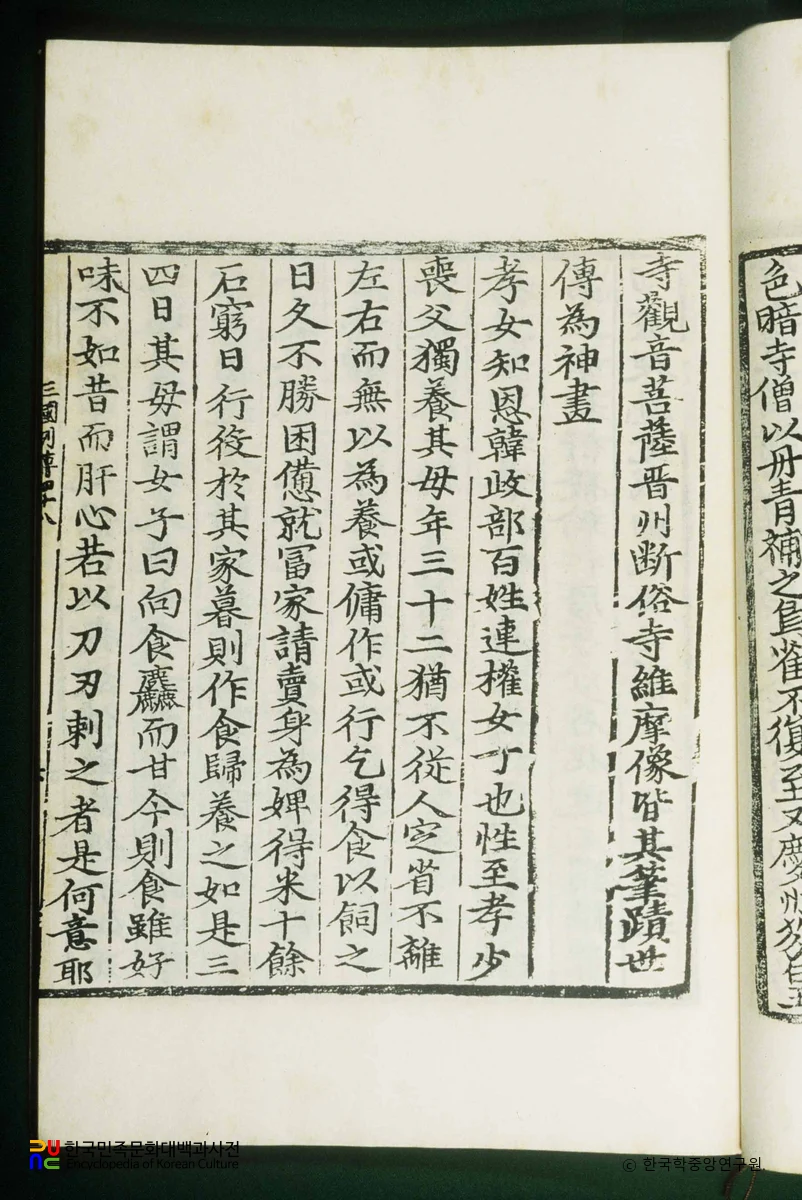 色暗寺僧以丹青補之烏雀不復至又慶州芬皇
寺觀音菩薩晋州断俗寺維摩像皆其筆蹟世
傳為神畫
孝女知恩韓歧部百姓連權女丁也性至孝少
喪父獨養其母年三十二猶不從人定省不離
左右而無以為養或傭作或行乞得食以飼之
日久不勝困憊就冨家請賣身為婢得米十餘
石窮日行役於其家暮則作食歸養之如是三
四日其母謂女子曰向食麤而甘今則食雖好
味不如昔而肝心若以刀刃刺之者是何意耶
三國列傳四十八
한국민족문화대백과사전
Encyclopedia of Korean Culture
© 한국학중앙연구원